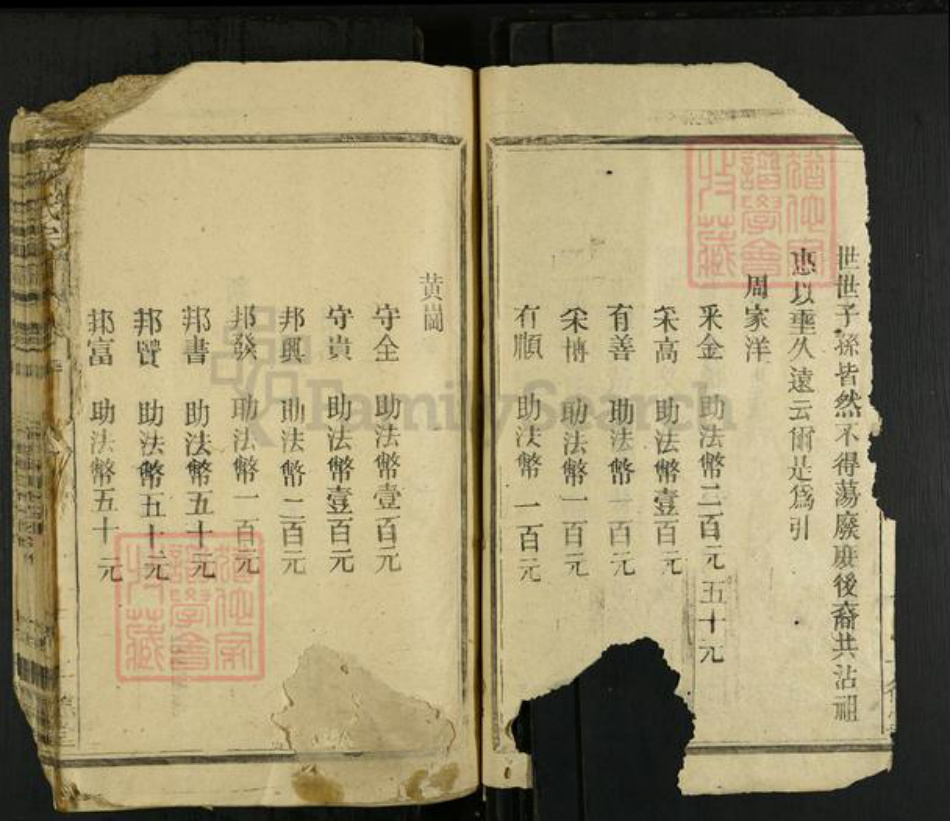 世世子孫皆然不得蕩廢庻後裔共沾祖
惠以垂久遠云爾是爲引
周家洋
采金 助法幣二百元五十元
采高 助法幣壹百元
有善 助法幣一百元
采博 助法幣一百元
有順 助法幣一百元
黄崗
守全 助法幣壹百元
守貴 助法幣壹百元
邦興 助法幣二百元
邦發 助法幣一百元
邦書 助法幣五十元
邦贒 助法幣五十元
邦富 助法幣五十元
FamilySearch